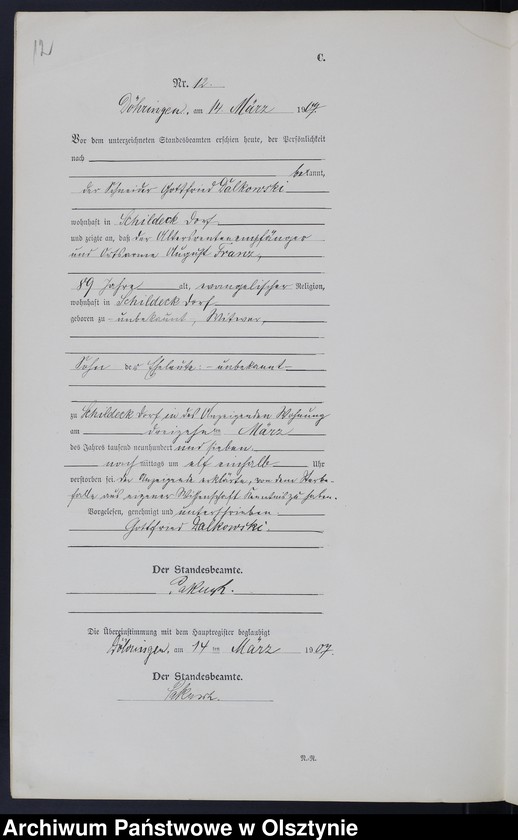 12
C.
Nr. 12.
Döhringen, am 14 März 1907.
Vor dem unterzeichneten Standesbeamten erschien heute, der Persönlichkeit
nach
bekannt,
der Schneider Gottfried Dalkowski
wohnhaft in Schildeck Dorf
und zeigte an, daß der Altersrentenempfänger
und Ortsarme August Franz,
89 Jahre alt, evangelischer Religion,
wohnhaft in Schildeck Dorf
geboren zu - unbekannt, Witwer,
Sohn der Eheleute: - unbekannt -
zu Schildeck Dorf in des Anzeigenden Wohnung
am dreizehnten März
des Jahres tausend neunhundert und sieben
nachmittags um elf einhalb Uhr
verstorben sei. Der Anzeigende erklärte, von dem Sterbe-
falle aus eigener Wissenschaft Kenntnis zu haben.
Vorgelesen, genehmigt und unterschrieben
Gottfried Dalkowski.
Der Standesbeamte.
Die Übereinstimmung mit dem Hauptregister beglaubigt
Döhringen, am 14 ten März 1907.
Der Standesbeamte.
N.-R.
Archiwum Państwowe w Olsztynie